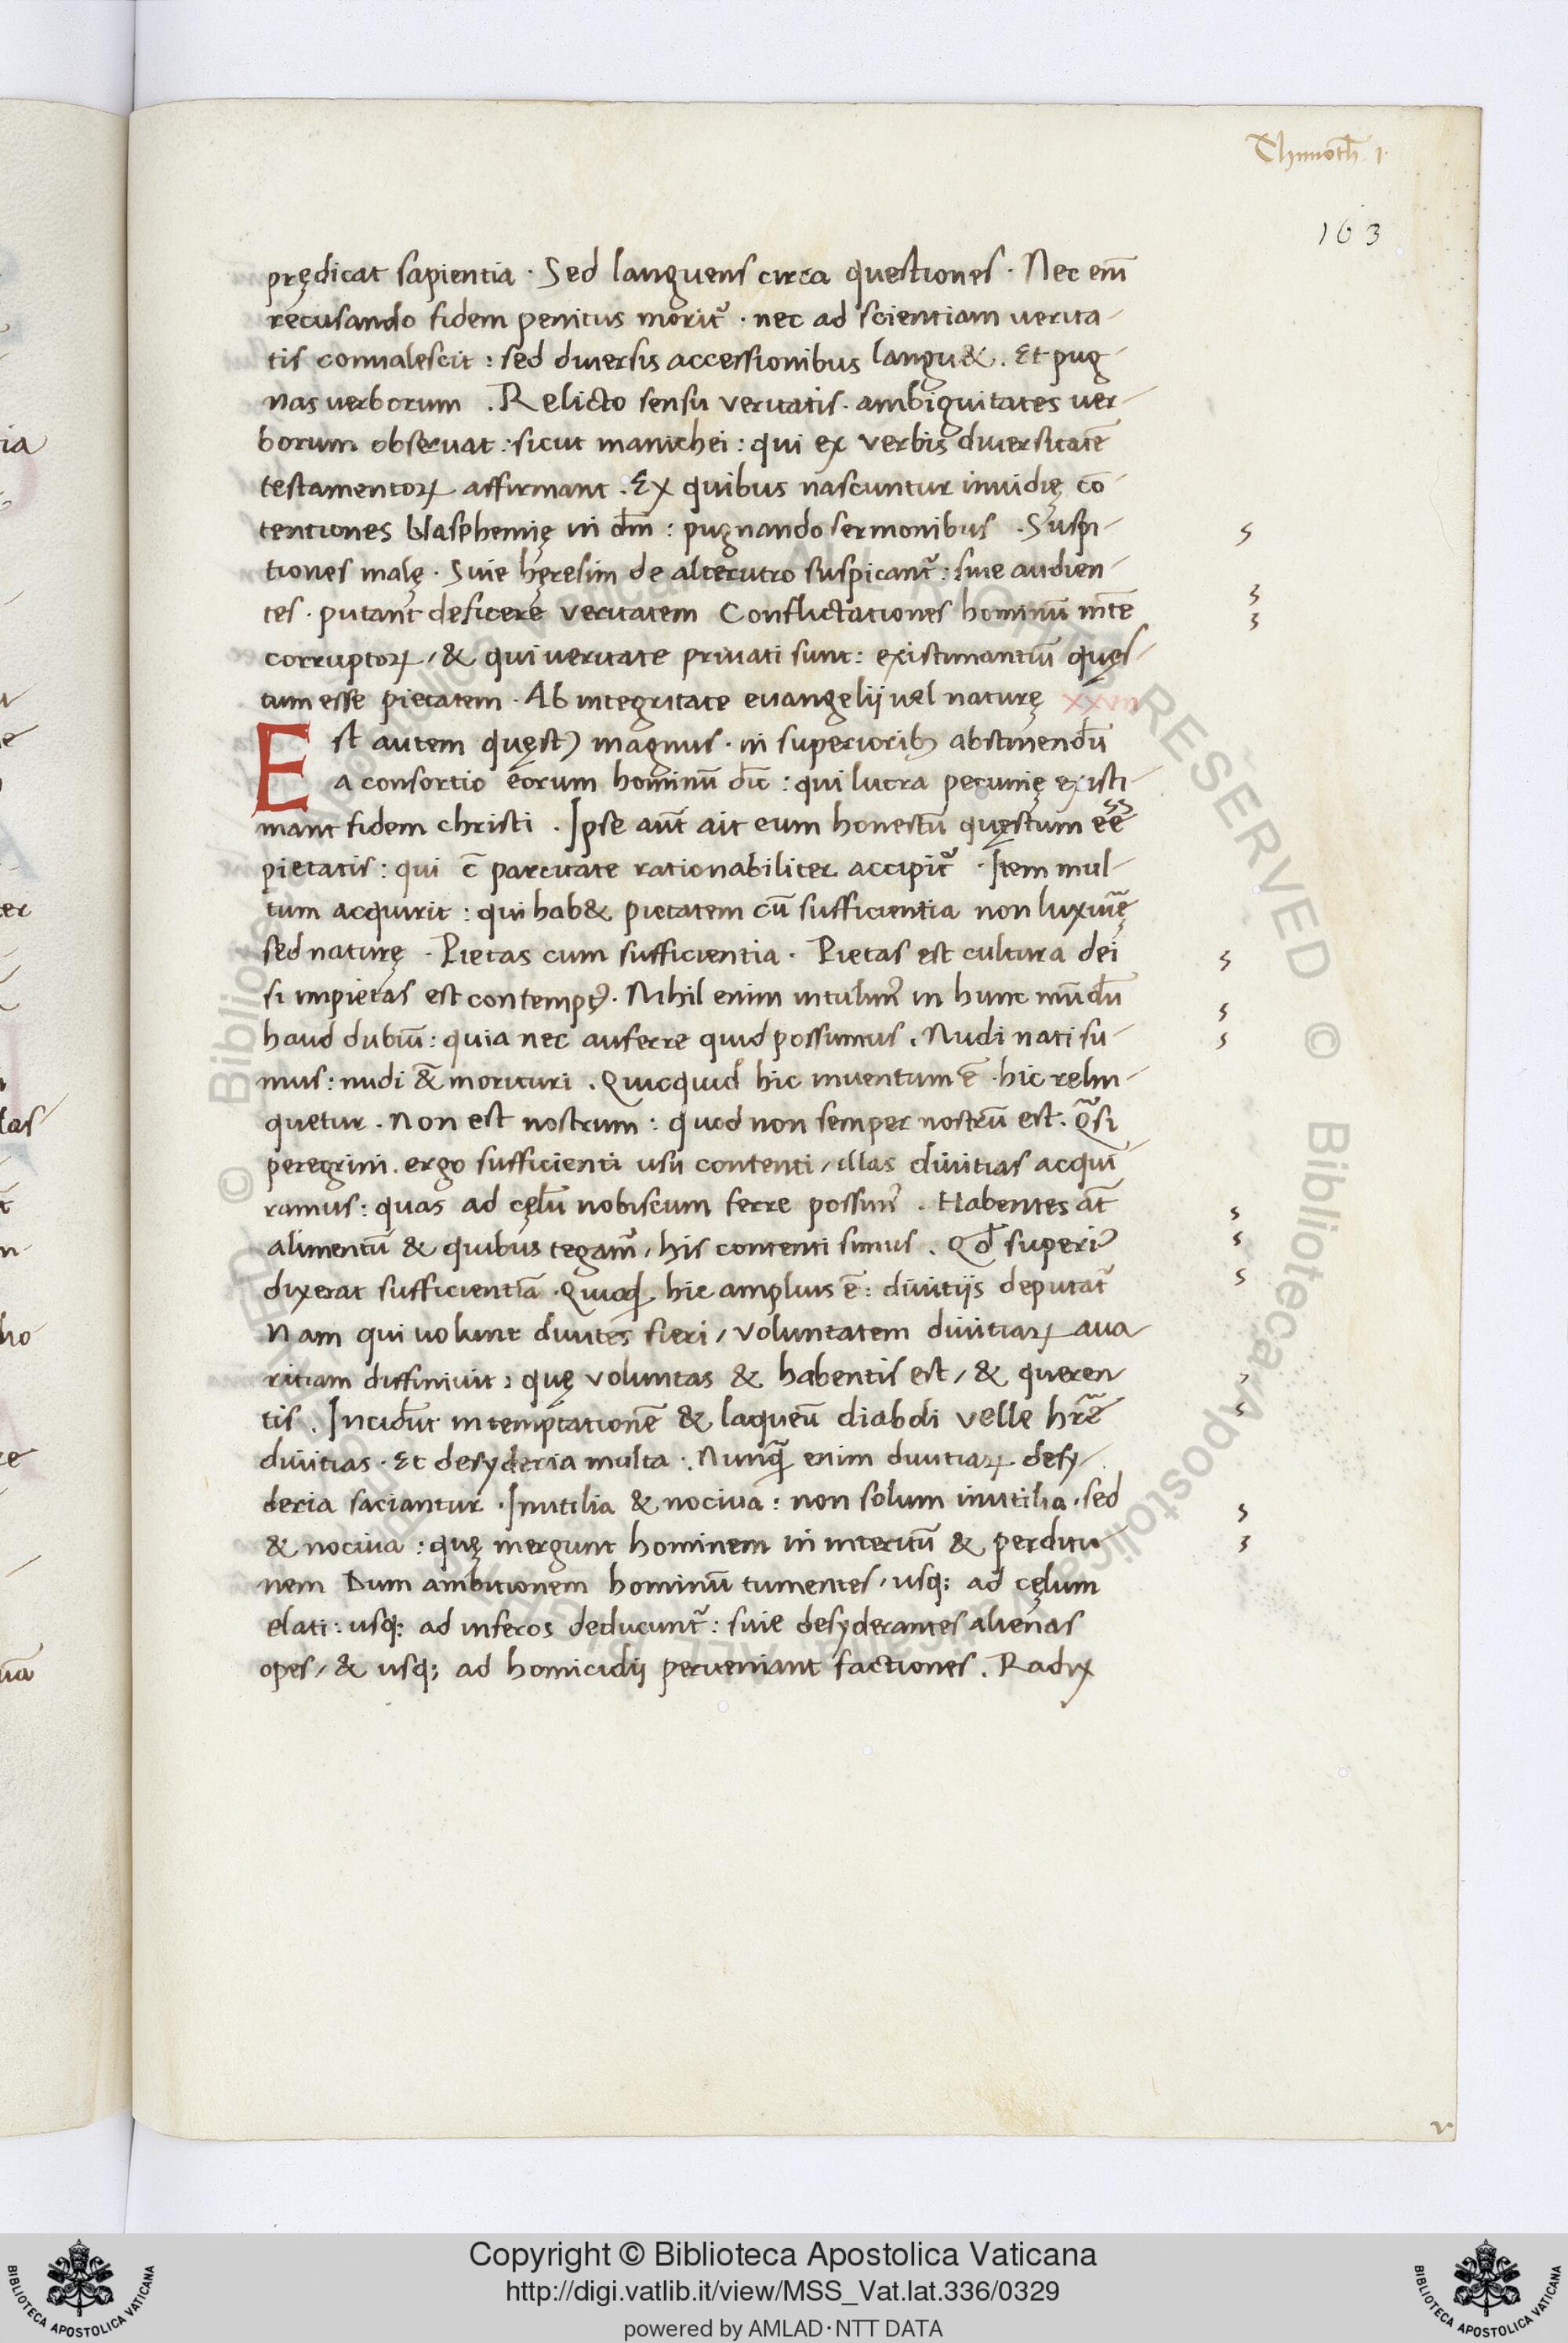 Thimoth̄. 1.
163
prędicat sapientia . Sed languens circa questiones . Nec em̄
recusando fidem penitus morit᷑ . nec ad scientiam verita-
tis convalescit : sed diversis accessionibus langu& . Et pug-
nas verborum . Relicto sensu veritatis . ambiguitates ver-
borum observat : sicut manichei : qui ex verbis diversitatē
testamentoꝝ affirmant . Ex quibus nascuntur invidię cō-
tentiones blasphemię in dm̄ : pugnando sermonibus . Suspi-
tiones malę . Sive hęresim de alterutro suspicant᷑ : sive audien-
tes . putant deficere veritatem Conflictationes hominū mēte
corruptoꝝ , & qui veritate privati sunt : existimantiū quęs-
tum esse pietatem . Ab integritate evangelij vel naturę xxvii
Est autem quęstꝰ magnus . in superioribꝫ abstinendū
a consortio eorum hominū dīc : qui lucra pecunię existi-
mant fidem christi . Ipse aūt ait eum honestū quęstum eē
ss
pietatis : qui c̄ parcitate rationabiliter accipit᷑ . Item mul-
tum acquirit : qui hab& pietatem cū sufficientia non luxurię
sed naturę . Pietas cum sufficientia . Pietas est cultura dei
si impietas est contemptꝰ . Nihil enim intulimꝰ in hunc mūdū
haud dubiū : quia nec auferre quid possumus . Nudi nati su-
mus : nudi &̄ morituri . Quicquid hic inventum ē . hic relin-
quetur . Non est nostrum : quod non semper nostrū est . Qᷓsi
peregrini . ergo sufficienti usu contenti , illas divitias acqui-
ramus : quas ad cęlū nobiscum ferre possimꝰ . Habentes āt
alimentū & quibus tegamꝰ , his contenti simus . Qđ superiꝰ
dixerat sufficientiā . Quicꝗd hic amplius ē : divitijs deputat᷑
Nam qui volunt divites fieri , voluntatem divitiaꝝ ava-
ritiam diffinivit : quę voluntas & habentis est , & queren-
tis . Incidūt in temptationē & laqueū diaboli velle hr̄e
divitias . Et desyderia multa . Nunqᷓ enim divitiaꝝ desy-
deria saciantur . Inutilia & nociva : non solum inutilia . sed
& nociva : quę mergunt hominem in interitū & perditio-
nem Dum ambitionem hominū tumentes , usqꝫ ad cęlum
elati : usqꝫ ad inferos deducunt᷑ : sive desyderantes alienas
opes , & usqꝫ ad homicidij perveniant factiones . Radix
Copyright © Biblioteca Apostolica Vaticana
http://digi.vatlib.it/view/MSS_Vat.lat.336/0329
powered by AMLAD·NTT DATA
BIBLIOTECA APOSTOLICA VATICANA
BIBLIOTECA APOSTOLICA VATICANA